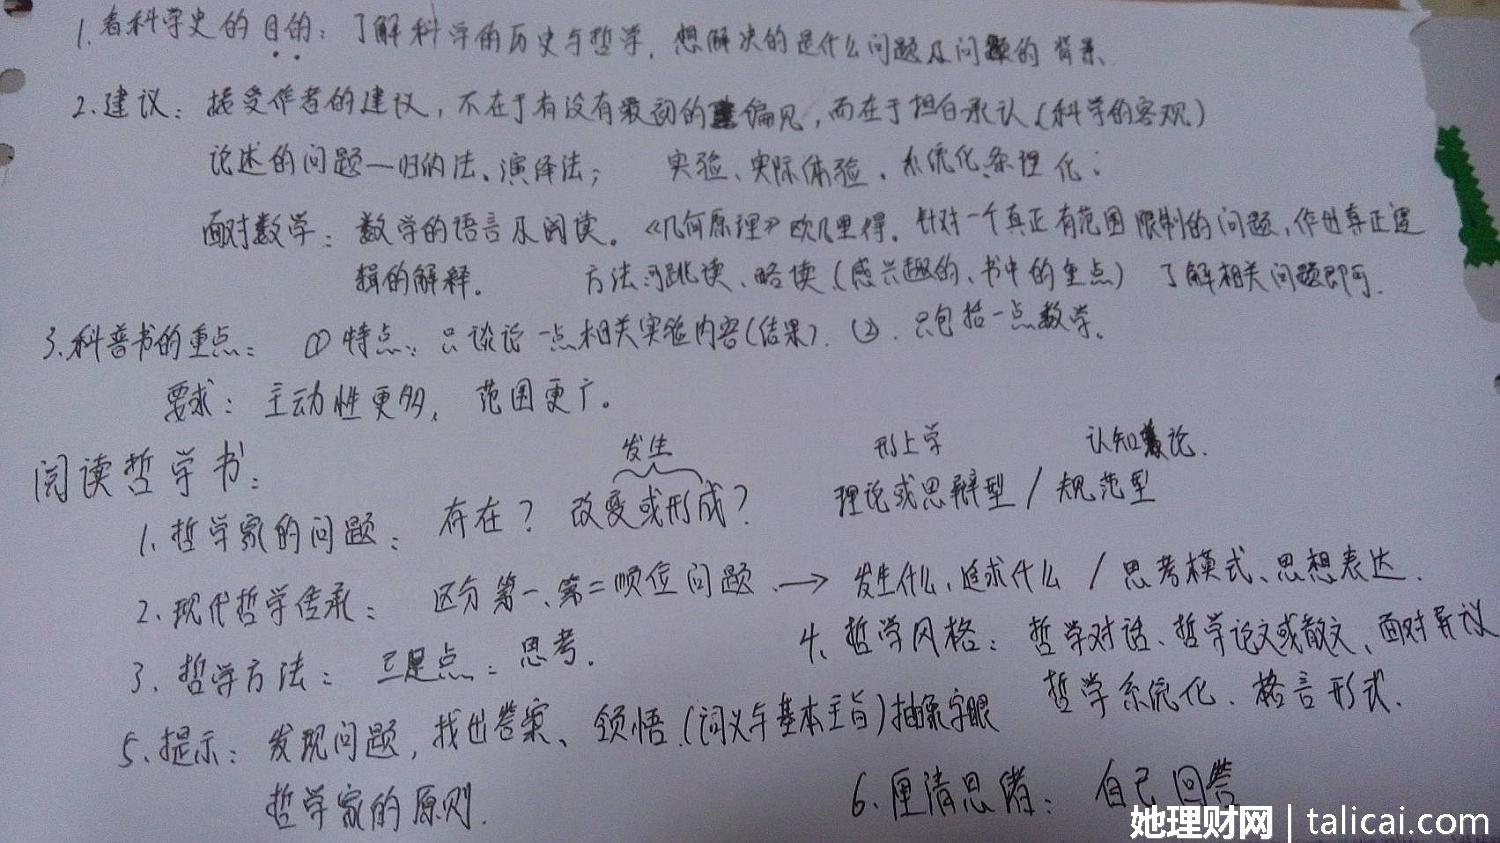 1. 看科学史的目的：了解科学的历史与哲学，想解决的是什么问题及问题的背景.
2. 建议：接受作者的建议，不在于有没有最初的偏见，而在于担白承认（科学的客观）
论述的问题—归纳法、演绎法； 实验、实际体验、系统化条理化；
面对数学：数学的语言及阅读。《几何原理》欧几里得. 针对一个真正有范围限制的问题，作出真正逻
辑的解释。 方法：跳读、略读（感兴趣的、书中的重点） 了解相关问题即可.
3. 科普书的重点： ①特点：只谈论一点相关实验内容(结果). ②. 只包括一点数学。
要求：主动性更多， 范围更广。
发生 形上学 认知论.
阅读哲学书：
1. 哲学家的问题： 存在？ 改变或形成？ 理论或思辩型 / 规范型
2. 现代哲学传承： 区分第一、第二顺位问题 → 发生什么、追求什么 / 思考模式、思想表达.
3. 哲学方法： 立足点：思考. 4. 哲学风格：哲学对话、哲学论文或散文、面对异议
哲学系统化、格言形式.
5. 提示：发现问题，找出答案、领悟.(词义与基本主旨)抽象字眼
哲学家的原则.
6. 厘清思绪： 自己回答
她理财网 | talicai.com